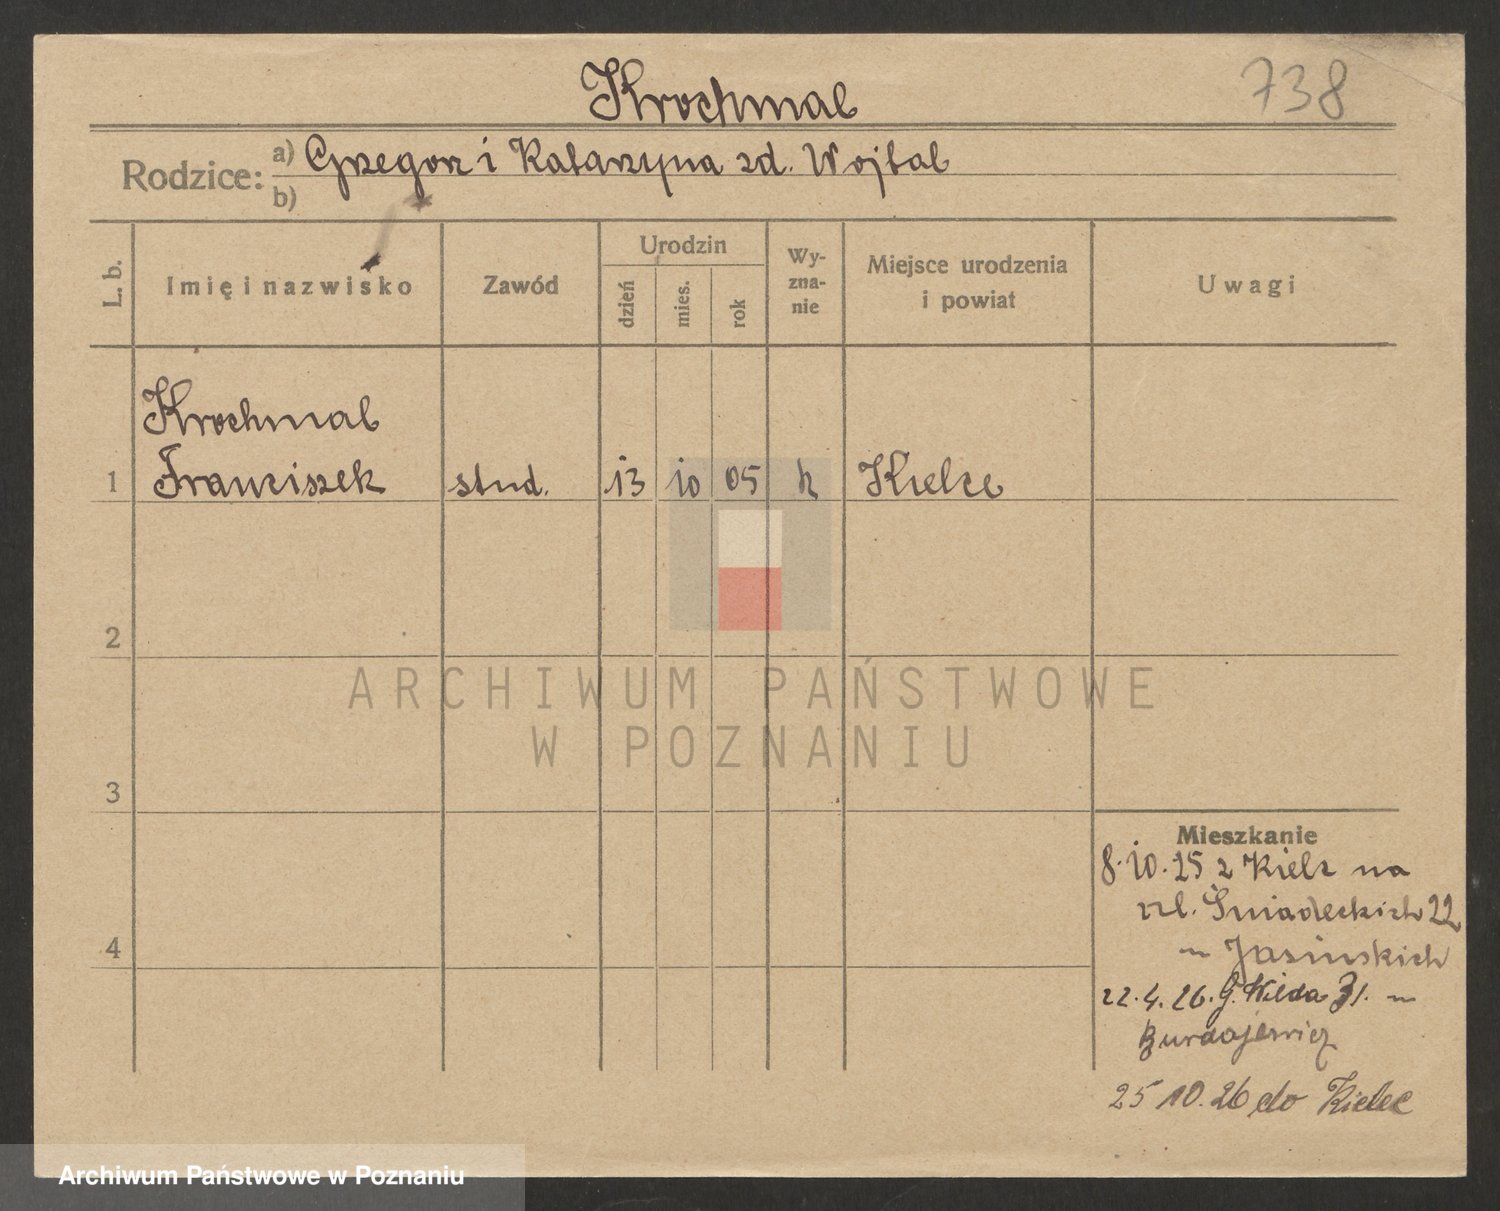 Krochmal
738
Rodzice: a) Grzegorz i Katarzyna zd. Wojtal
b)
L. b.
Imię i nazwisko
Zawód
Urodzin
dzień
mies.
rok
Wy-
zna-
nie
Miejsce urodzenia
i powiat
Uwagi
Krochmal
1 Franciszek stud. 13 10 05 k Kielce
2
3
4
Mieszkanie
8.10.25 z Kielc na
ul. Śniadeckich 22
u Jasińskich
22.4.26. G. Wilda 31. u
Burdajewicz
25 10. 26 do Kielec
ARCHIWUM PAŃSTWOWE
W POZNANIU
Archiwum Państwowe w Poznaniu